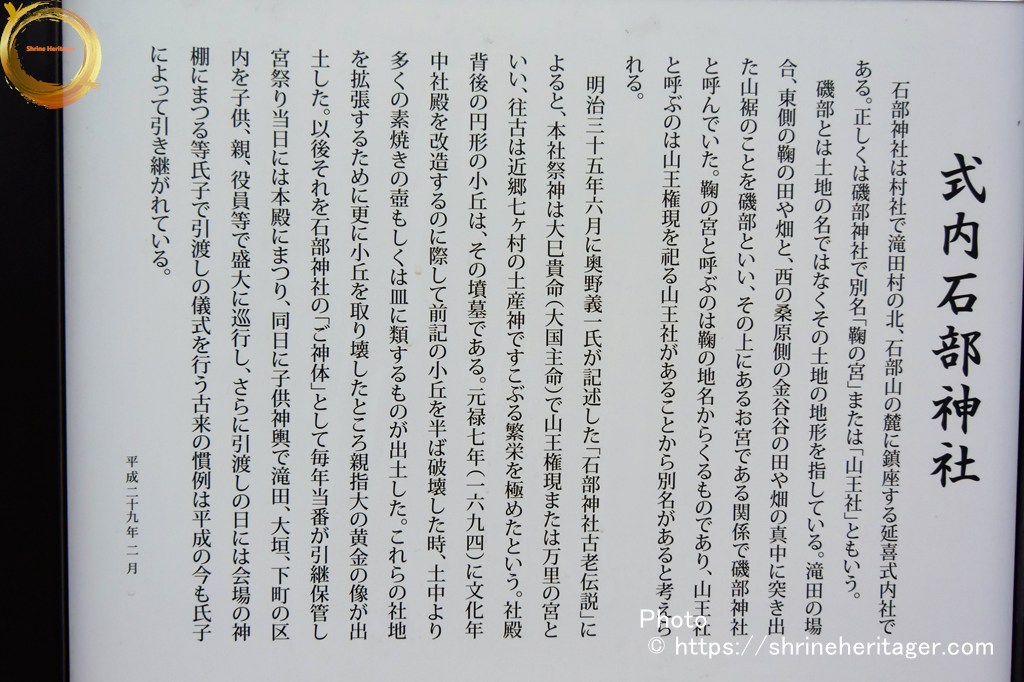 式内石部神社
石部神社は村社で滝田村の北、石部山の麓に鎮座する延喜式内社で
ある。正しくは磯部神社で別名「鞠の宮」または「山王社」ともいう。
磯部とは土地の名ではなくその土地の地形を指している。滝田の場
合、東側の鞠の田や畑と、西の桑原側の金谷谷の田や畑の真中に突き出
た山裾のことを磯部といい、その上にあるお宮である関係で磯部神社
と呼んでいた。鞠の宮と呼ぶのは鞠の地名からくるものであり、山王社
と呼ぶのは山王権現を祀る山王社があることから別名があると考えら
れる。
明治三十五年六月に奥野義一氏が記述した「石部神社古老伝説」に
よると、本社祭神は大巳貴命(大国主命)で山王権現または万里の宮と
いい、往古は近郷七ヶ村の土産神ですこぶる繁栄を極めたという。社殿
背後の円形の小丘は、その墳墓である。元禄七年(一六九四)に文化年
中社殿を改造するのに際して前記の小丘を半ば破壊した時、土中より
多くの素焼きの壺もしくは皿に類するものが出土した。これらの社地
を拡張するために更に小丘を取り壊したところ親指大の黄金の像が出
土した。以後それを石部神社の「ご神体」として毎年当番が引継保管し
宮祭り当日には本殿にまつり、同日に子供神輿で滝田、大垣、下町の区
内を子供、親、役員等で盛大に巡行し、さらに引渡しの日には会場の神
棚にまつる等氏子で引渡しの儀式を行う古来の慣例は平成の今も氏子
によって引き継がれている。
平成二十九年二月
Shrine Heritager
Photo
© https://shrineheritager.com